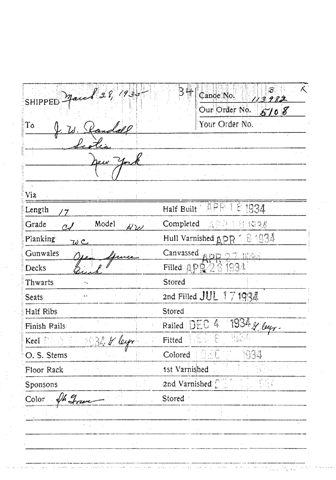 SHIPPED March 28, 1935 34 Canoe No. 113982
Our Order No. 5108
To J. W. Randall Your Order No.
Scotia
New York
Via
Length 17 Half Built APR 1934
Grade Model HW Completed 1934
Planking WC Hull Varnished APR 18 1934
Gunwales Open Spruce Canvassed APR 27
Decks Birch Filled APR 28 1934
Thwarts " Stored
Seats " 2nd Filled JUL 17 1934
Half Ribs Stored
Finish Rails Railed DEC 4 1934
Keel 1934 Fitted
O. S. Stems Colored 1934
Floor Rack 1st Varnished
Sponsons 2nd Varnished
Color Dk Green Stored